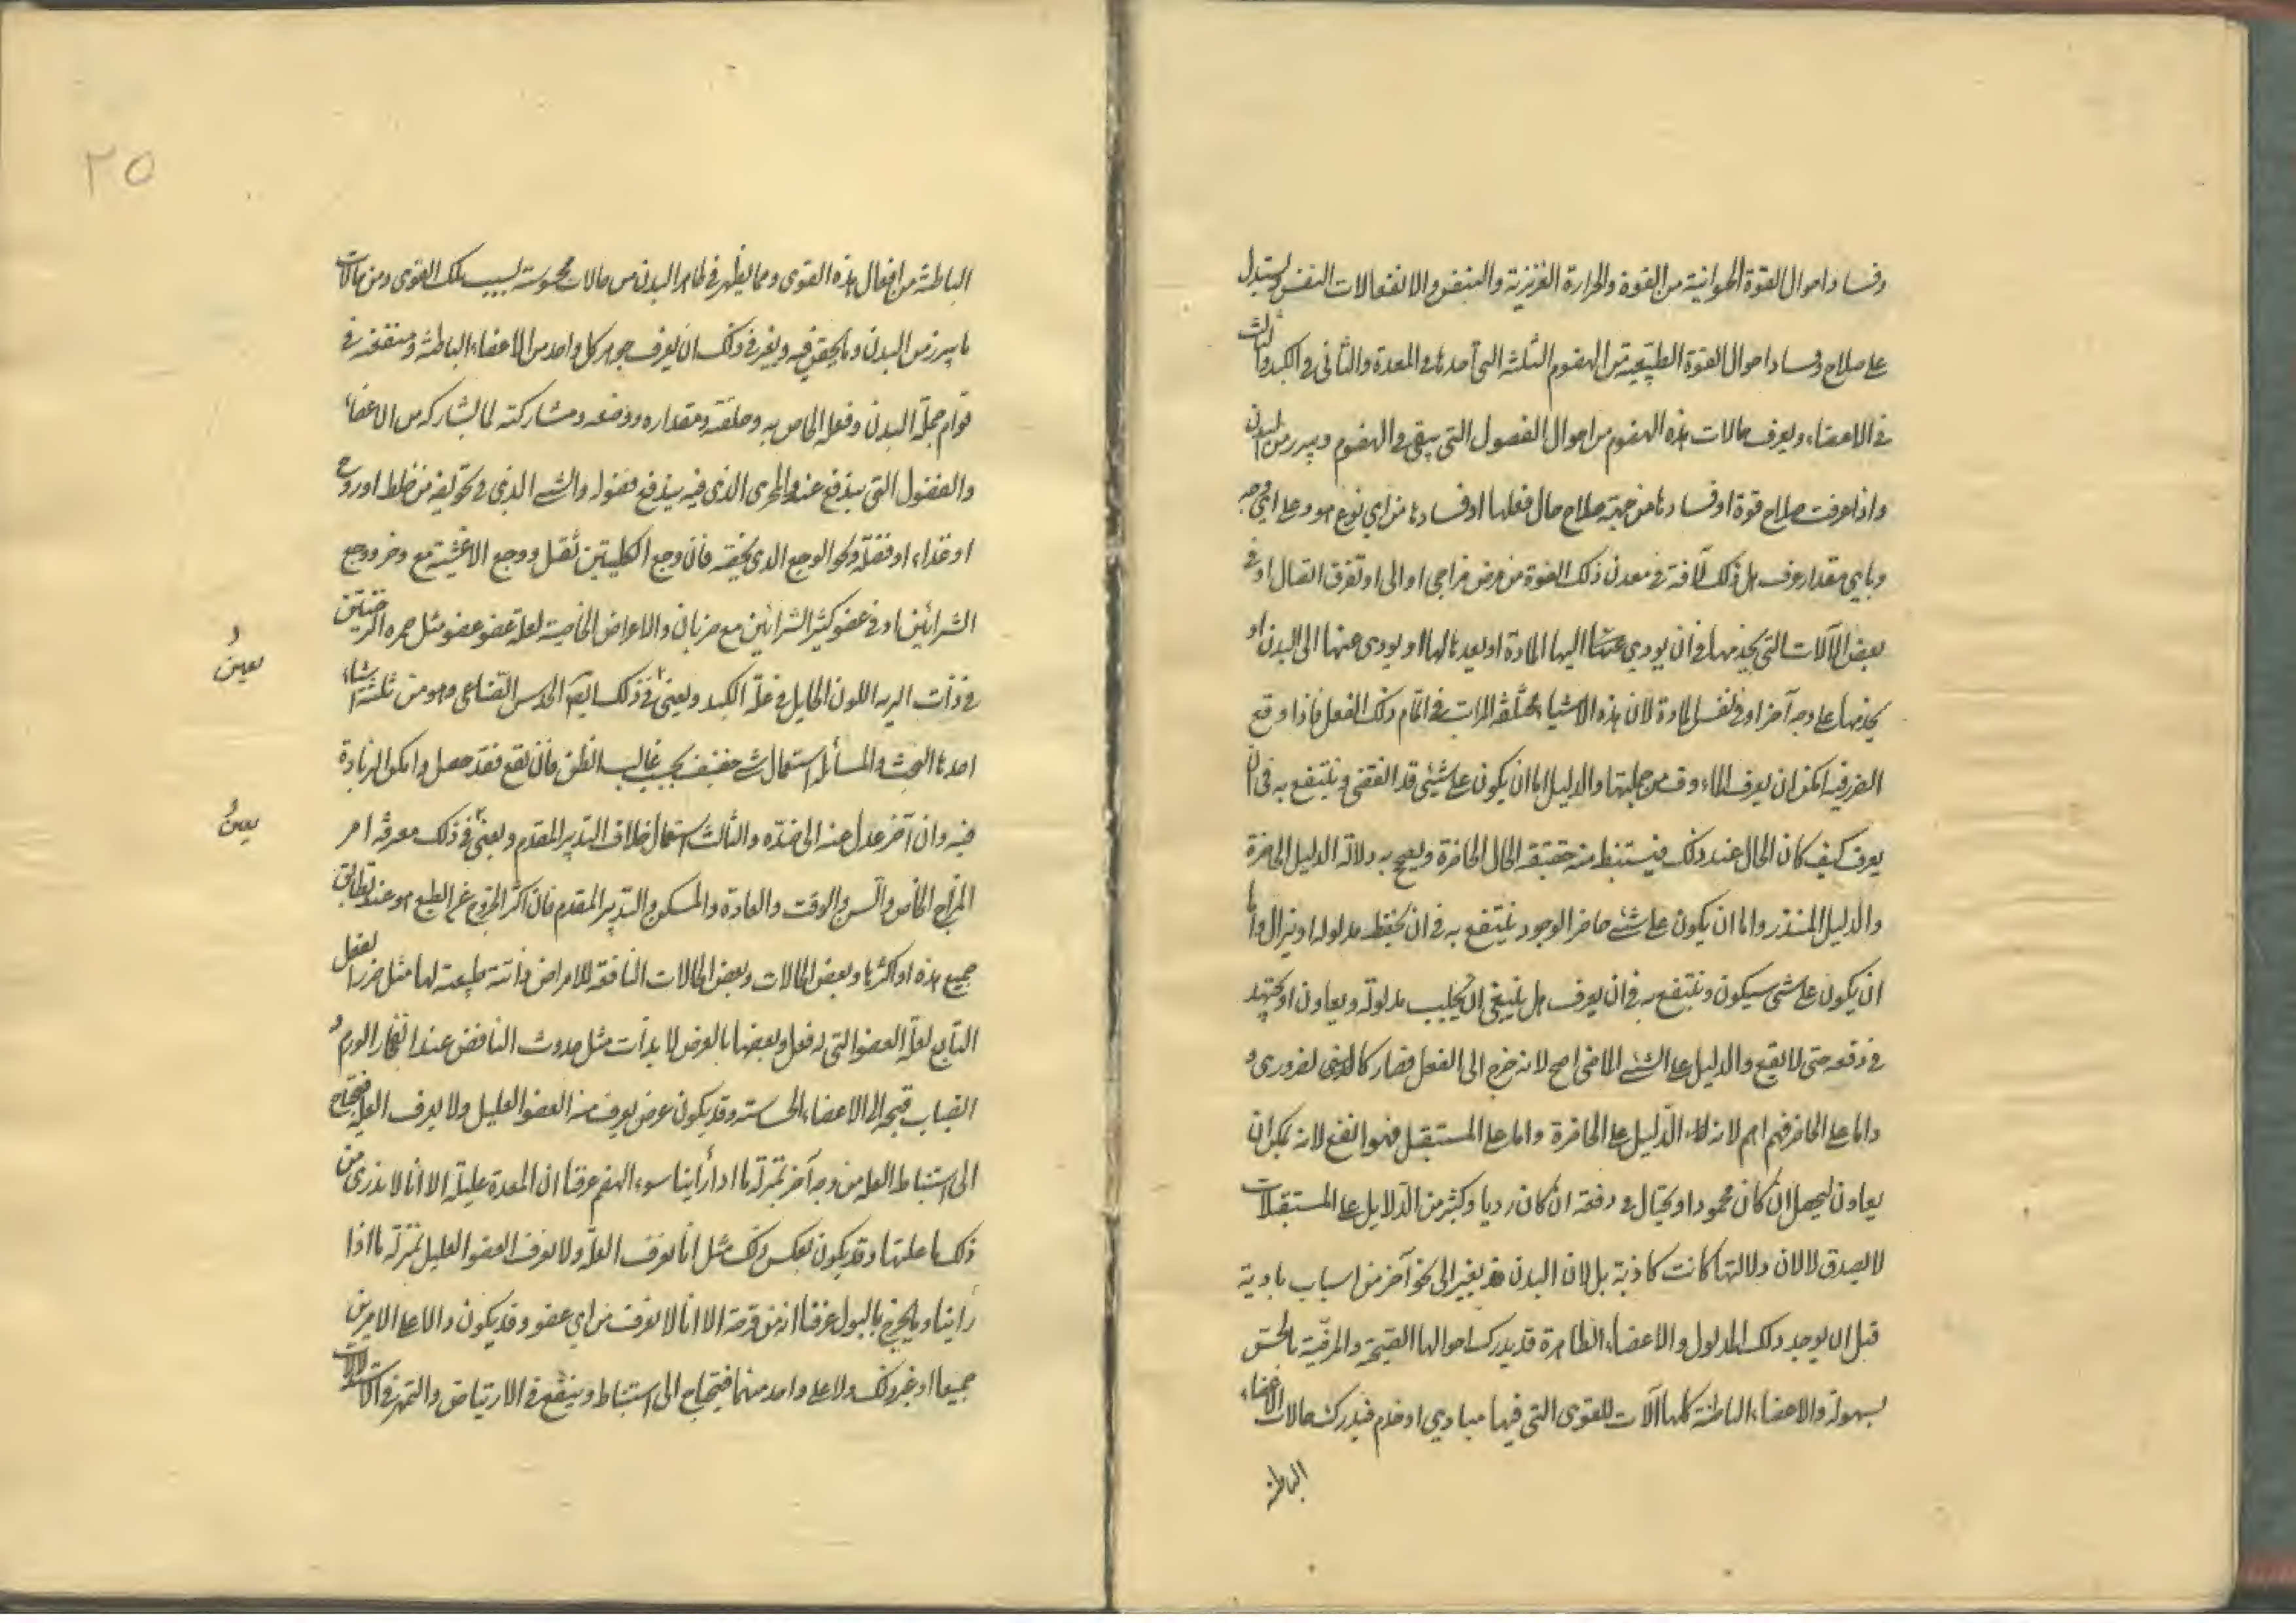 وفساد احوال القوة الحيوانية من القوة والحرارة الغريزية والنبض والانفعالات النفس ويستدل
على صلاح وفساد احوال القوة الطبيعية من الهضوم الثلثة التي احدها في المعدة والثاني في الكبد والثالث
في الاعضاء ويعرف حالات هذه الهضوم من احوال الفضول التي يبقى في الهضوم ويبرز من البدن
واذا عرفت صلاح قوة او فسادها من جهة صلاح حال فعلها او فسادها من اي نوع هو وعلى اي وجه
وباي مقدار عرف هل ذلك لآفة في معدن ذلك القوة من مرض مزاجي او الى او تفرق اتصال او في
بعض الآلات التي يخدمها في ان يودي اليها المادة او يعدها لها او يودى عنها الى البدن او
يخدمها على وجه آخر او في نفس المادة لان هذه الاشياء مختلفة المراتب في اتمام ذلك الفعل فاذا وقع
الضرر فيه امكن ان يعرف الماءوف من جملتها والدليل اما ان يكون على شيئ قد انقضى وينتفع به في ان
يعرف كيف كان الحال عند ذلك فيستنبط منه حقيقة الحال الحاضرة ويصح به دلالة الدليل الحاضرة
والدليل المنذر واما ان يكون على شئ حاضر الوجود ينتفع به في ان يحفظ مدلوله او يزال واما
ان يكون على شئ سيكون وينتفع به في ان يعرف هل ينبغي ان يجلب مدلوله ويعاون او يجتهد
في دفعه حتى لا يقع والدليل على الشئ الماضي اصح لانه خرج الى الفعل فصار كالشئ الضروري و
واما على الحاضر فهم اهم لانه الدليل على الحاضرة واما على المستقبل فهو انفع لانه يمكن ان
يعاون ليحصل ان كان محمودا او يحتال في دفعه ان كان رديا وكثير من الدلايل على المستقبلات
لا يصدق لا لان دلالتها كانت كاذبة بل لان البدن قد يغير الى نحو آخر من اسباب بادية
قبل ان يوجد ذلك المدلول والاعضاء الظاهرة قد يدرك احوالها القبيحة والمرضية بالحس
بسهولة والاعضاء الباطنة كلها آلات للقوى التي فيها مبادي او خدم فيدرك حالات الاعضاء
الباطنة
٢٥
الباطنة من افعال هذه القوى ومما يظهر في ظاهر البدن من حالات محسوسة لسبب تلك القوى ومن حالات
ما يبرز من البدن وما يحقن فيه ويغر في ذلك ان يعرف جوهر كل واحد من الاعضاء الباطنة ومنفعته في
قوام جملة البدن وفعله الخاص به وخلقته ومقداره ووضعه ومشاركته لما يشاركه من الاعضاء
والفضول التي يندفع عنه والمجرى الذي فيه يندفع فضوله والشئ الذي في تجويفه من خلط او روح
او غذاء او فضلة ونحو الوجع الذي يخصه فان وجع الكليتين ثقل ووجع الاغشية مع وخز ووجع
الشرائين او في عضو كثير الشرائين مع ضربان والاعراض الخاصية لعلة عضو عضو مثل حمره الوجنتين
في ذات الريه اللون الحايل في علة الكبد ويعين في ذلك ايضا الحدس الصناعي وهو من ثلثة اشياء
احدها البحث والمسائلة استعمال شئ خفيف بحسب غالب الظن فان نفع فقد حصل وامكن الزيادة
فيه وان اضر عدل عنه الى ضده والثالث استعمال خلاف التدبير المقدم ويعين في ذلك معرفة امر
المزاج الخاص والسن والوقت والعادة والمسكن والتدبير المقدم فان اكثر الخروج عن الطبع هو عند تطابق
جميع هذه او اكثرها وبعض الحالات وبعض الحالات النافعة للامراض ذاتية طبيعية لها مثل ضرر الفعل
التابع لعلة العضو التي له فعل وبعضها بالعرض لا بذات مثل حدوث النافض عند انفجار الورم و
انصباب قيحه الى الاعضاء الحساسة وقد يكون عرض يعرف منه العضو العليل ولا يعرف العلة فيحتاج
الى استنباط العله من وجه آخر بمنزلة ما اذا رأينا سوء الهضم عرفنا ان المعدة عليلة الا انا لا ندرى من
ذلك ما علتها وقد يكون بعكس ذلك مثل انا نعرف العلة ولا نعرف العضو العليل بمنزلة ما اذا
رأينا دما يخرج بالبول عرفنا انه من قرحة الا انا لا نعرف من اي عضو وقد يكون دالا على الامرين
جميعا او غير ذلك ولا على واحد منهما فيحتاج الى استنباط وينتفع في الارتياض والتمهر في الاستدلالات
يعين
يعين